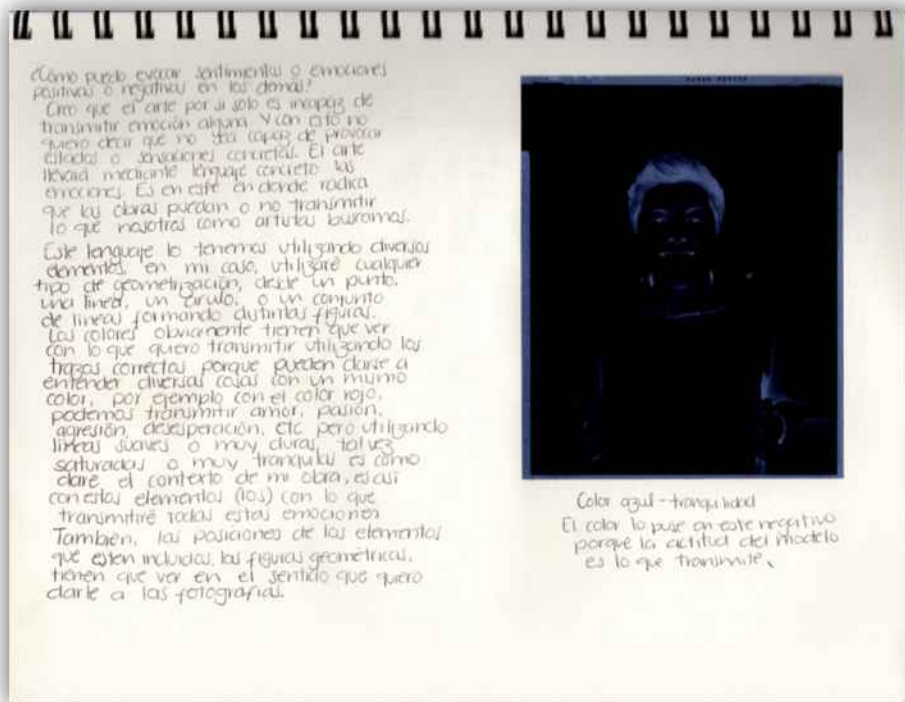 ¿Cómo puedo evocar sentimientos o emociones
positivas o negativas en los demás?
Creo que el arte por si solo es incapaz de
transmitir emoción alguna. Y con esto no
quiero decir que no sea capaz de provocar
estados o sensaciones concretas. El arte
llevará mediante lenguaje concreto las
emociones. Es en este en donde radica
que las obras puedan o no transmitir
lo que nosotros como artistas buscamos.
Este lenguaje lo tenemos utilizando diversos
elementos, en mi caso, utilizaré cualquier
tipo de geometrización, desde un punto,
una linea, un circulo, o un conjunto
de lineas formando distintas figuras.
Los colores obviamente tienen que ver
con lo que quiero transmitir utilizando los
trazos correctos porque pueden darse a
entender diversas cosas con un mismo
color, por ejemplo con el color rojo,
podemos transmitir amor, pasión,
agresión, desesperación, etc pero utilizando
lineas suaves o muy duras, tal vez
saturadas o muy tranquilas es como
daré el contexto de mi obra, es asi
con estos elementos (los) con lo que
transmitiré todas estas emociones
También, las posiciones de los elementos
que esten incluidos, las figuras geométricas,
tienen que ver en el sentido que quiero
darle a las fotografías.
Color azul - tranquilidad
El color lo puse en este negativo
porque la actitud del modelo
es lo que transmite.